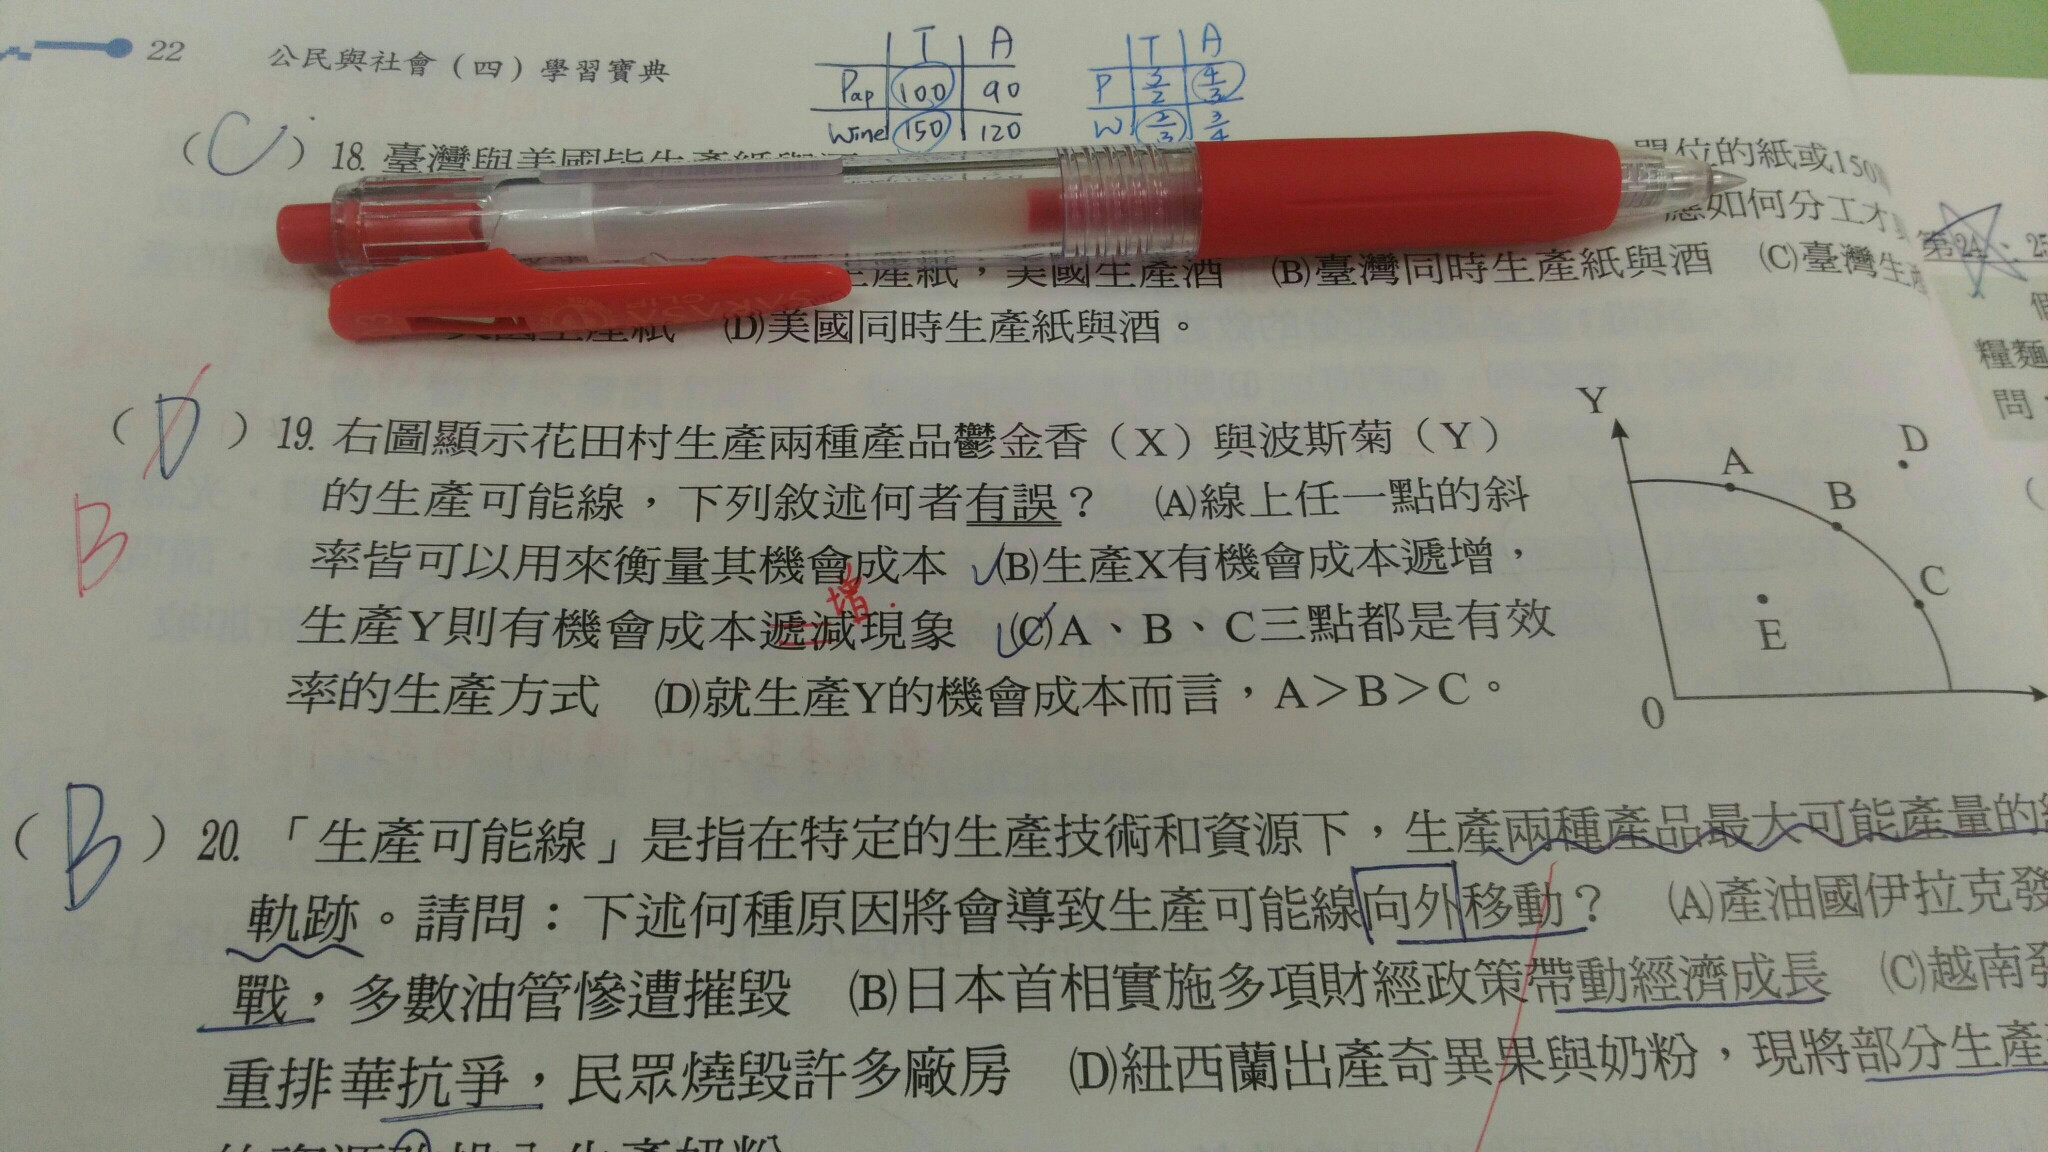 22 公民與社會(四)學習寶典
T A
Pap 100 90
Wine 150 120
T A
P 3/2 4/3
W 2/3 3/4
(C)18. 臺灣與美國皆生產紙與 單位的紙或150
應如何分工才
生產紙,美國生產酒 (B)臺灣同時生產紙與酒 (C)臺灣生產
美國生產紙 (D)美國同時生產紙與酒。
(D)19. 右圖顯示花田村生產兩種產品鬱金香(X)與波斯菊(Y)
B
的生產可能線,下列敘述何者有誤? (A)線上任一點的斜
率皆可以用來衡量其機會成本 (B)生產X有機會成本遞增,
增
生產Y則有機會成本遞減現象 (C)A、B、C三點都是有效
率的生產方式 (D)就生產Y的機會成本而言,A>B>C。
Y
A
B
C
D
E
0
(B)20. 「生產可能線」是指在特定的生產技術和資源下,生產兩種產品最大可能產量的
軌跡。請問:下述何種原因將會導致生產可能線向外移動? (A)產油國伊拉克發
戰,多數油管慘遭摧毀 (B)日本首相實施多項財經政策帶動經濟成長 (C)越南發
重排華抗爭,民眾燒毀許多廠房 (D)紐西蘭出產奇異果與奶粉,現將部分生產
第24
糧麵
問